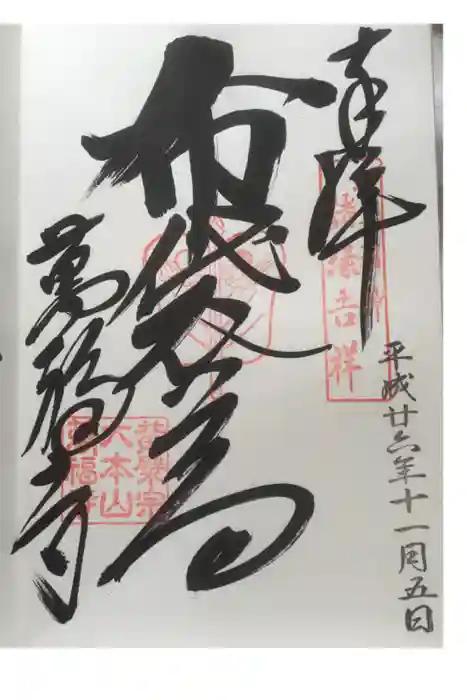 奉拝
吉祥
平成廿六年十一月五日
布袋尊
萬福寺
黄檗宗
大本山
萬福寺